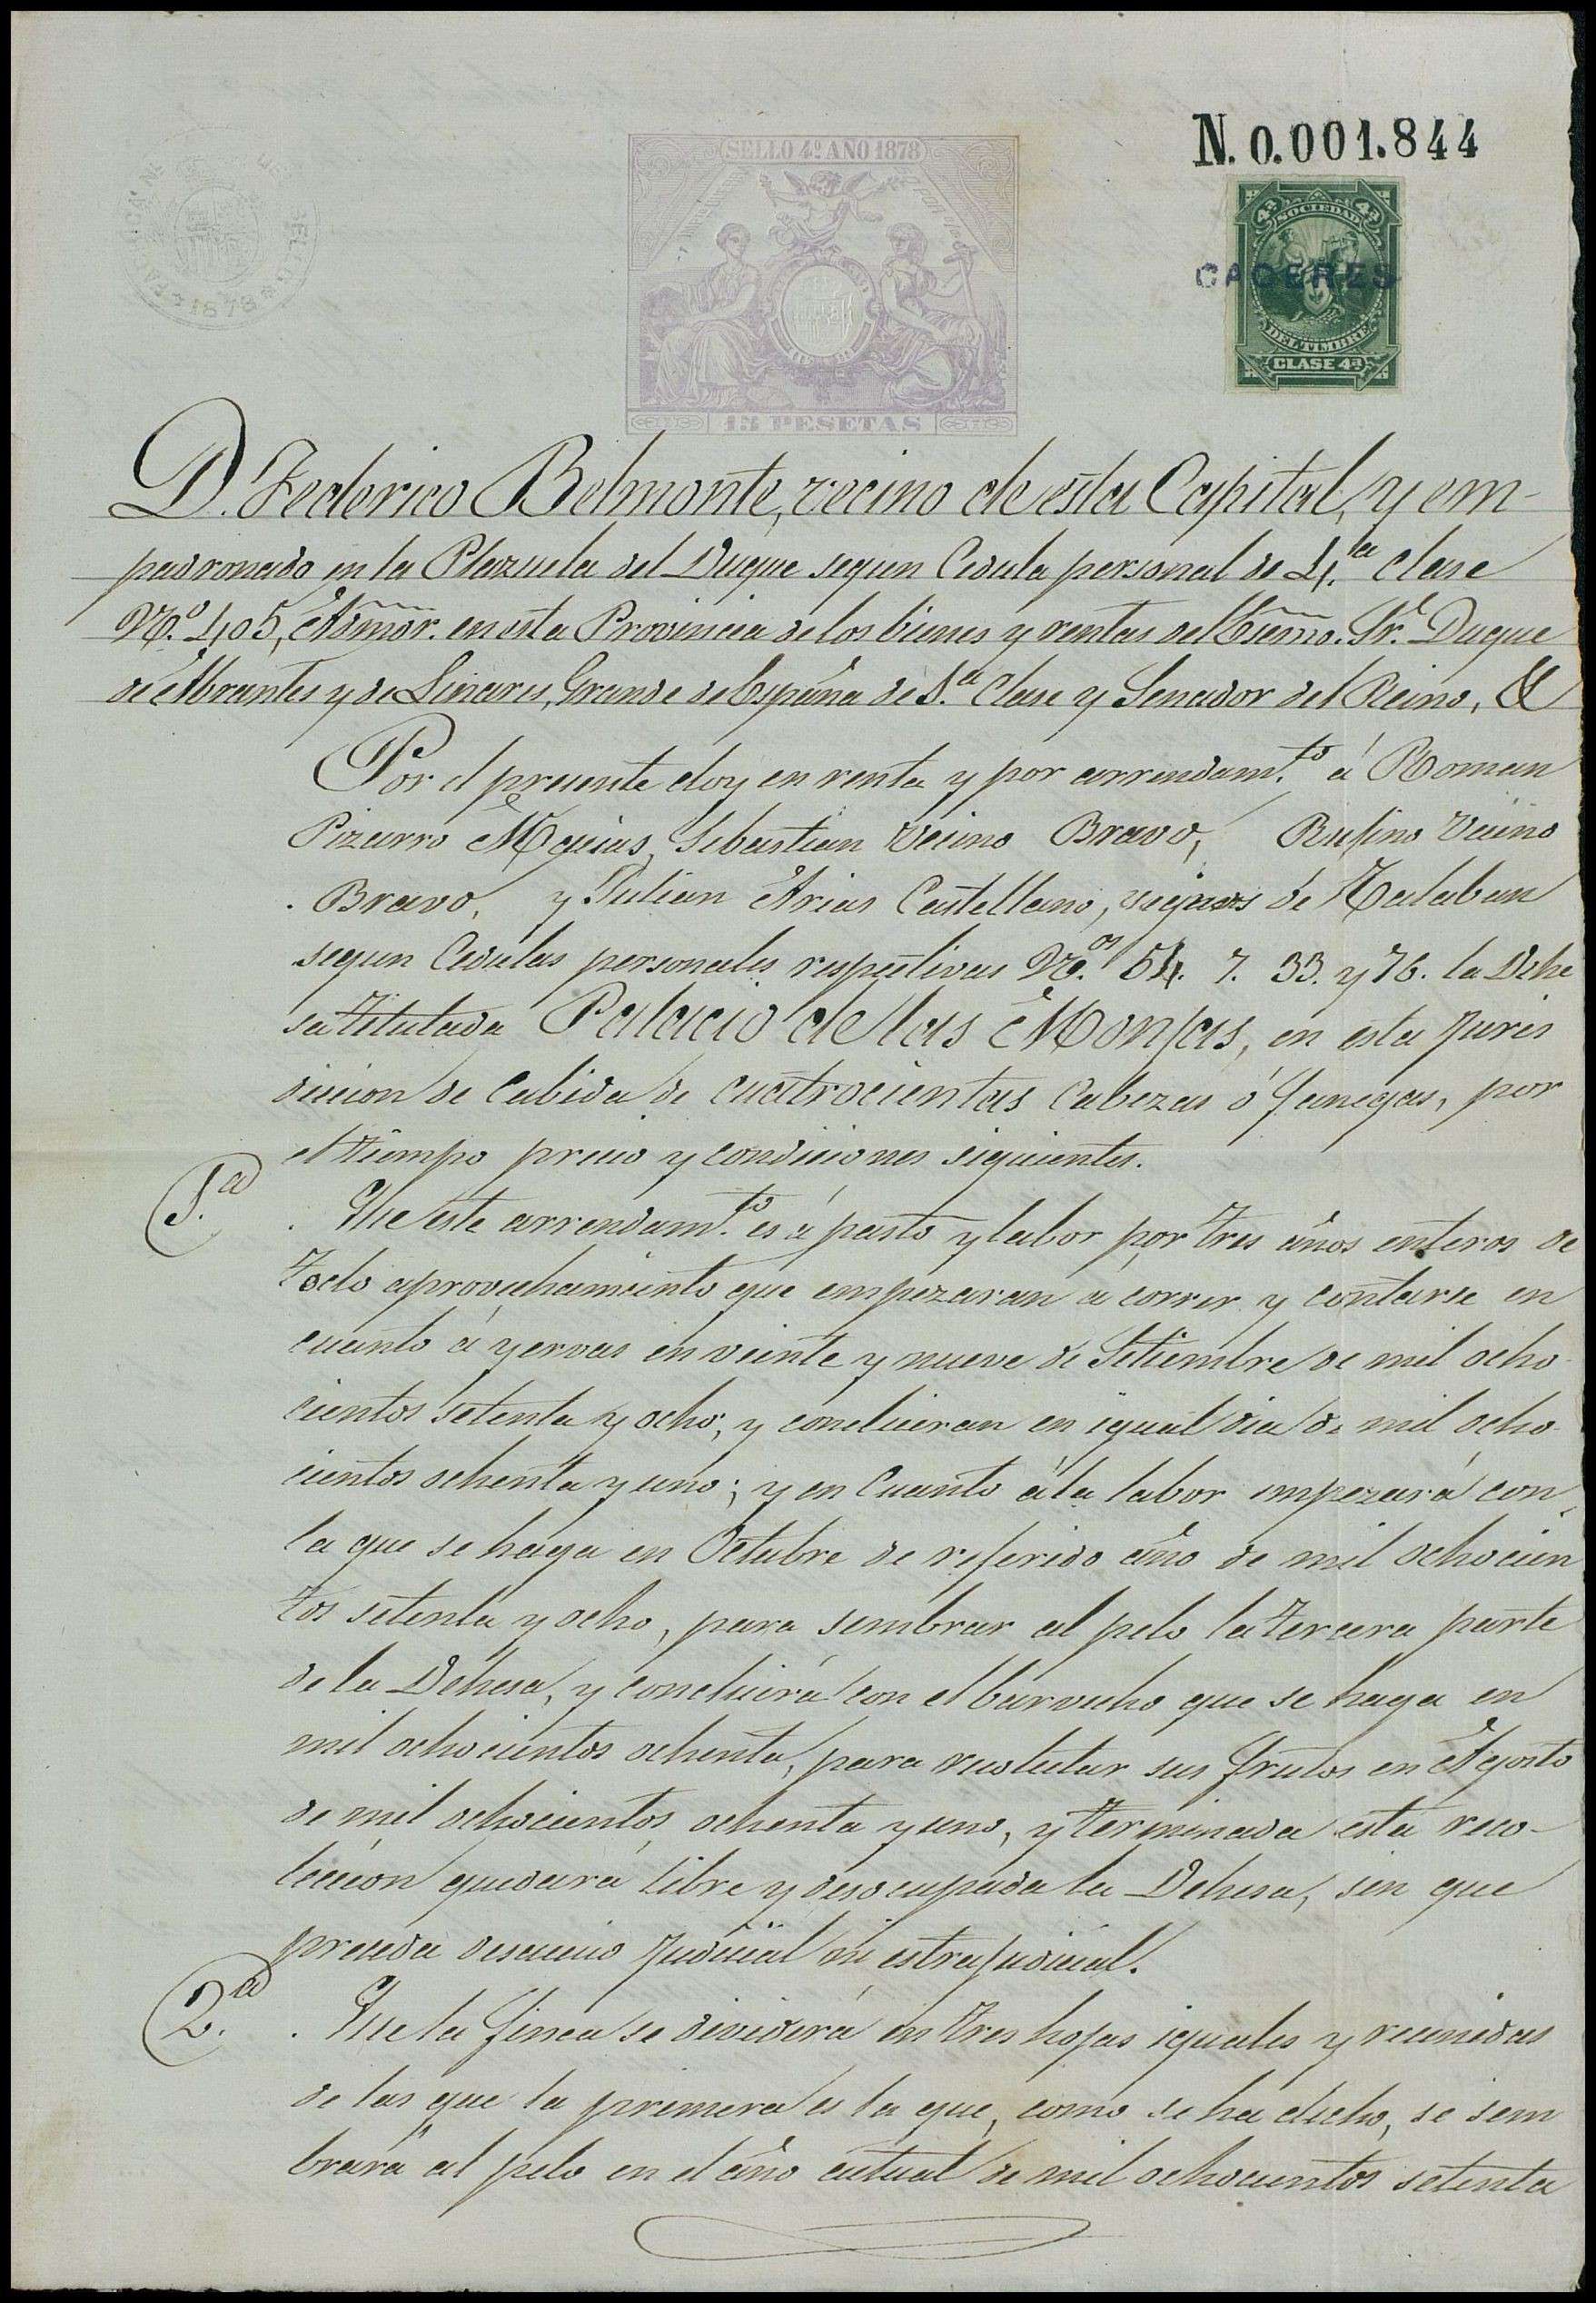 N. 0.001.844
SELLO 4º AÑO 1878
4ª SOCIEDAD 4ª
CACERES
DEL TIMBRE
CLASE 4ª
1878
15 PESETAS
D. Federico Belmonte, vecino de esta Capital, y em-
padronado en la Plazuela del Duque segun Cedula personal de 4.ª Clase
N.º 405, Admor. en esta Provincia de los bienes y rentas del Escmo. Sr. Duque
de Abrantes y de Linares, Grande de España de 1.ª Clase y Senador del Reino, &
Por el presente doy en renta y por arrendam.to á Roman
Pizarro Megias, Sebastian Vecino Bravo, Rufino Vecino
Bravo, y Julian Arias Castellano, vecinos de Talaban
segun Cedulas personales respectivas N.os 54. 7. 33. y 76. la Dehe
sa titulada Palacio de las Monjas, en esta Juris
diccion de Cabida de cuatrocientas Cabezas ó fanegas, por
el tiempo precio y condiciones siguientes.
1.ª Que este arrendam.to es á pasto y labor por tres años enteros de
todo aprovechamiento que empezaran á correr y contarse en
cuanto á yervas en veinte y nueve de Setiembre de mil ocho
cientos setenta y ocho, y concluiran en igual dia de mil ocho
cientos ochenta y uno; y en Cuanto á la labor empezará con
la que se haga en Octubre de referido año de mil ochocien
tos setenta y ocho, para sembrar al pelo la tercera parte
de la Dehesa, y concluirá con el barvecho que se haga en
mil ochocientos ochenta, para recolectar sus frutos en Agosto
de mil ochocientos ochenta y uno, y terminada esta reco-
leccion quedará libre y desocupada la Dehesa, sin que
preceda desaucio Judicial ni estrajudicial.
2.ª Que la finca se dividirá en tres hojas iguales y reunidas
de las que la primera es la que, como se ha dicho, se sem
brará al pelo en el año actual de mil ochocientos setenta